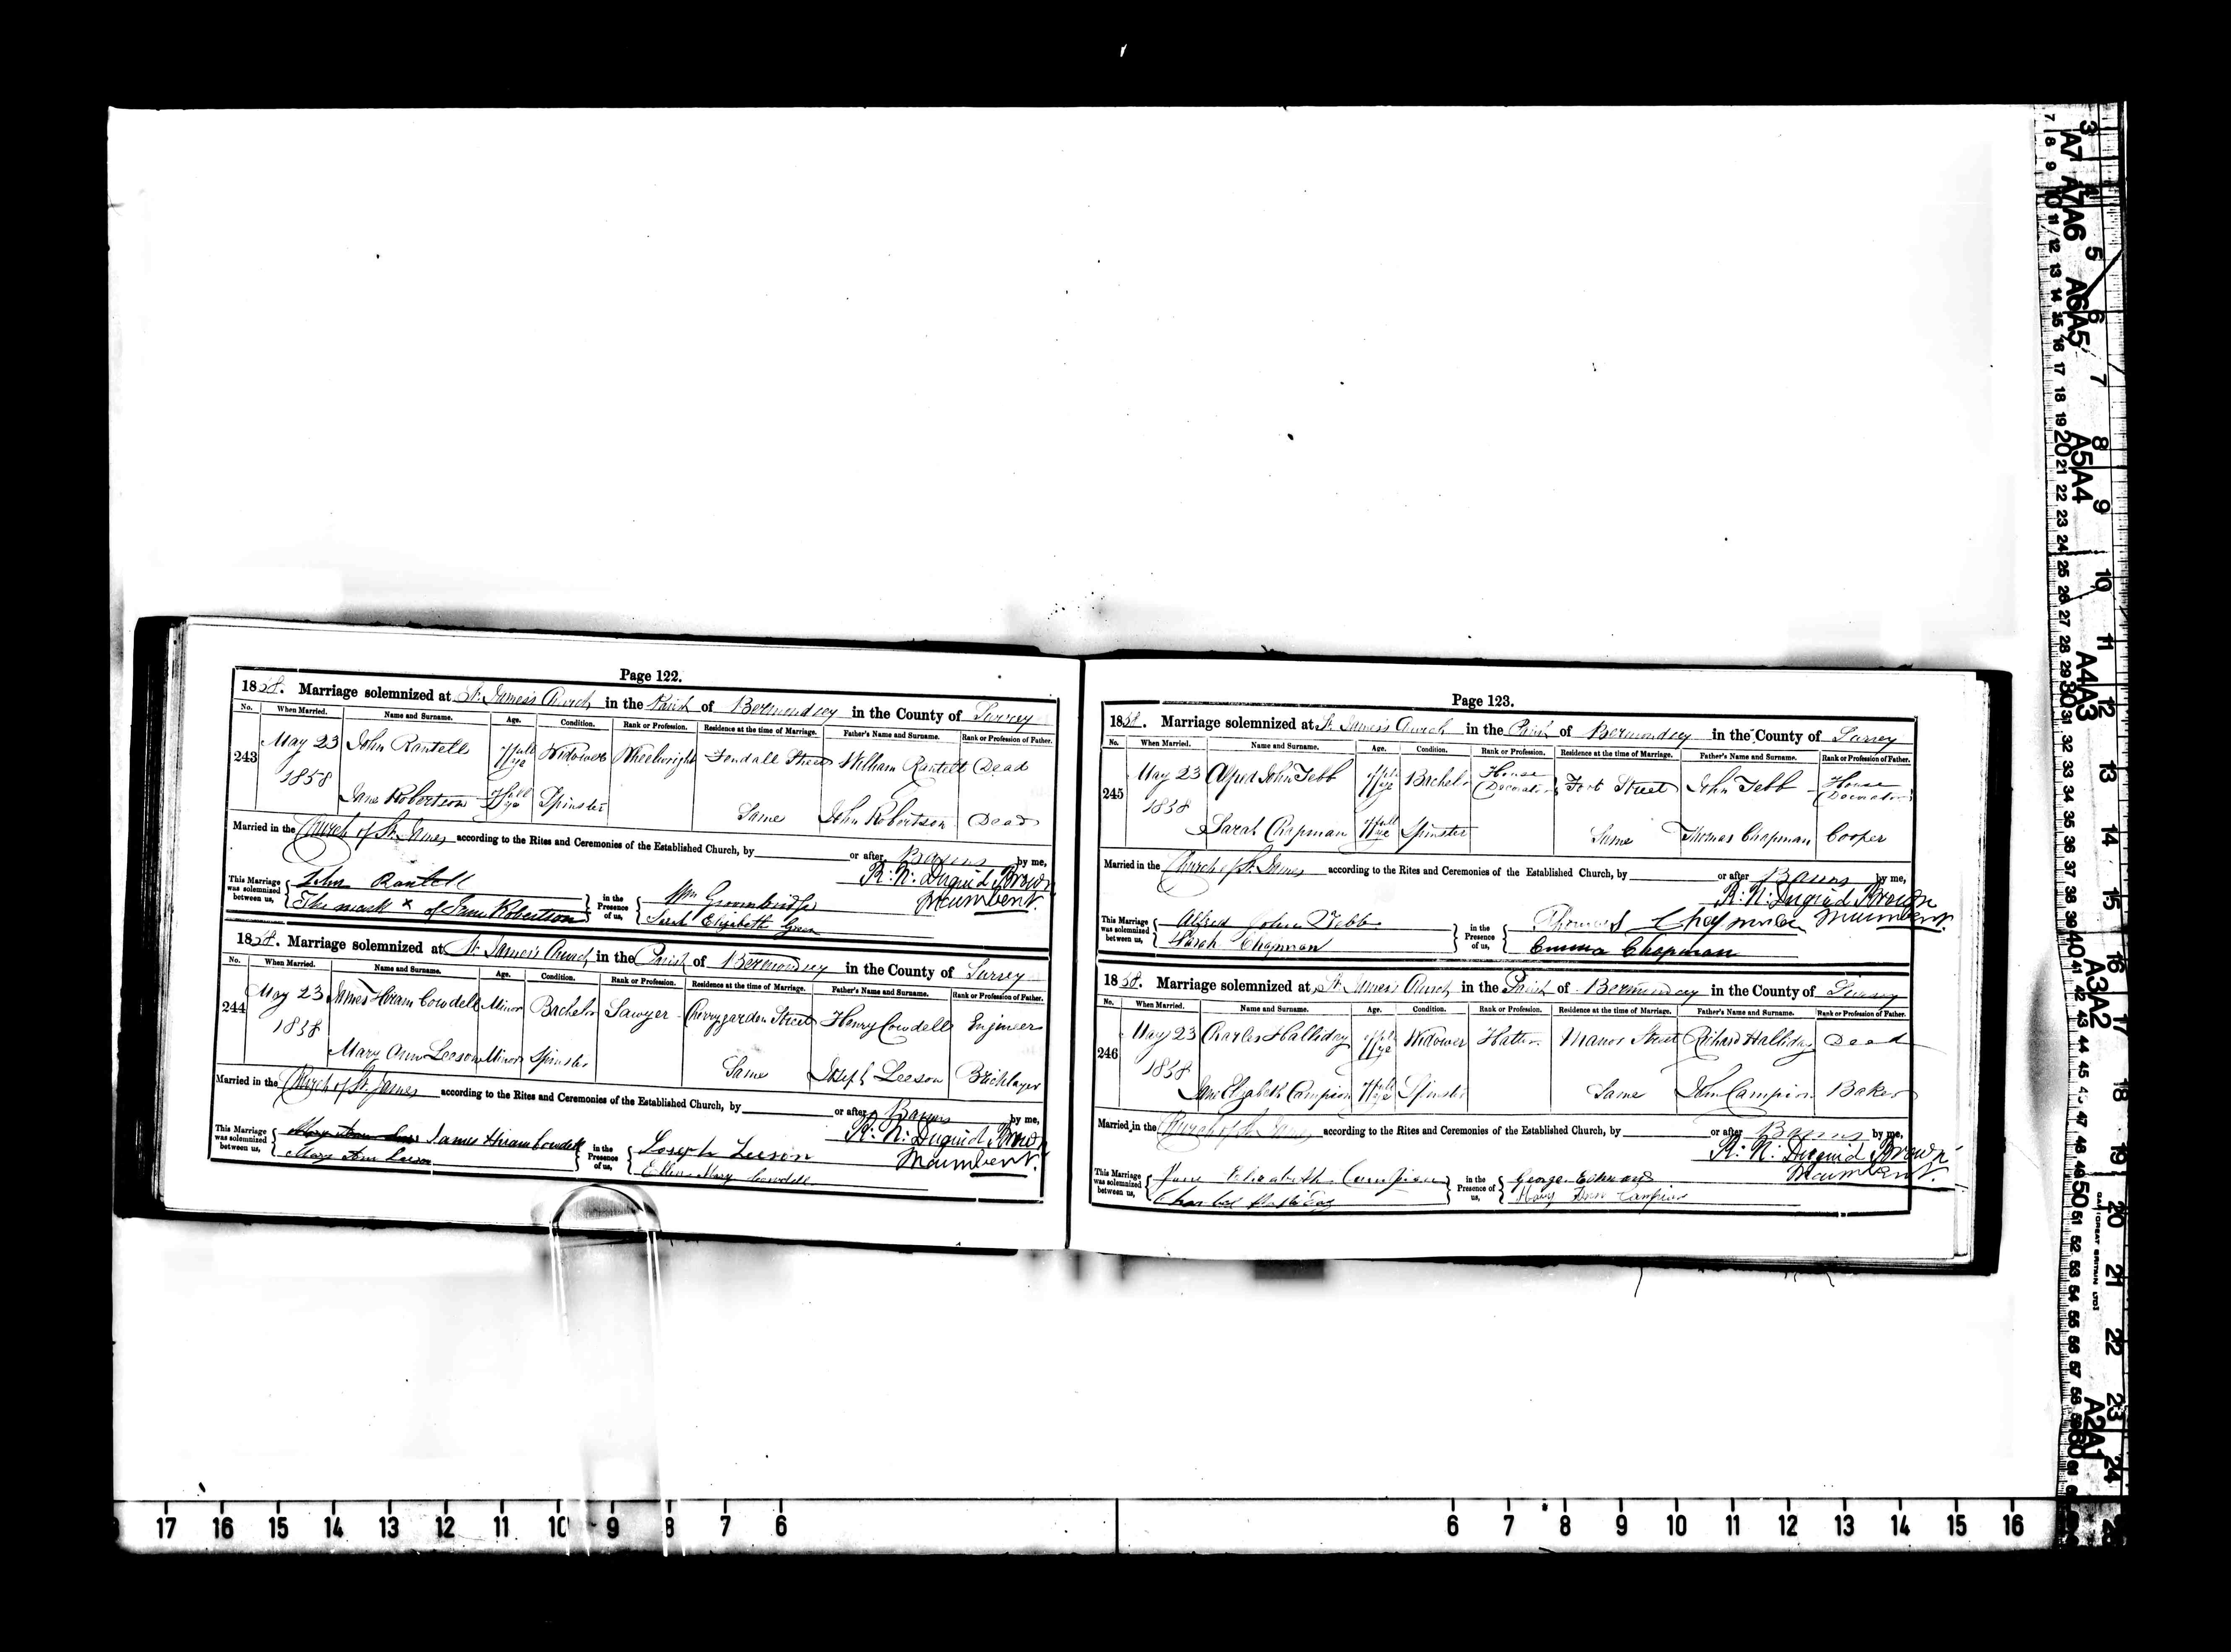 Page 122.
1858. Marriage solemnized at St. James's Church in the Parish of Bermondsey in the County of Surrey
No. When Married. Name and Surname. Age. Condition. Rank or Profession. Residence at the time of Marriage. Father's Name and Surname. Rank or Profession of Father.
243 May 23 1858 John Rantell Full Age Widower Wheelwright Fendall Street William Rantell Dead
Jane Robertson Full Age Spinster Same John Robertson Dead
Married in the Church of St. James according to the Rites and Ceremonies of the Established Church, by or after Banns by me,
R. N. Duguid Brown
Incumbent.
This Marriage was solemnized between us, John Rantell in the Presence of us, Wm Groombridge
The mark x of Jane Robertson Sarah Elizabeth Green
1858. Marriage solemnized at St. James's Church in the Parish of Bermondsey in the County of Surrey
No. When Married. Name and Surname. Age. Condition. Rank or Profession. Residence at the time of Marriage. Father's Name and Surname. Rank or Profession of Father.
244 May 23 1858 James Hiram Cowdell Minor Bachelor Sawyer Cherrygarden Street Henry Cowdell Engineer
Mary Ann Leeson Minor Spinster Same Joseph Leeson Bricklayer
Married in the Church of St. James according to the Rites and Ceremonies of the Established Church, by or after Banns by me,
R. N. Duguid Brown
Incumbent.
This Marriage was solemnized between us, James Hiram Cowdell in the Presence of us, Joseph Leeson
Mary Ann Leeson Ellen Mary Cowdell
Page 123.
1858. Marriage solemnized at St. James's Church in the Parish of Bermondsey in the County of Surrey
No. When Married. Name and Surname. Age. Condition. Rank or Profession. Residence at the time of Marriage. Father's Name and Surname. Rank or Profession of Father.
245 May 23 1858 Alfred John Tebb Full Age Bachelor House Decorator Fort Street John Tebb House Decorator
Sarah Chapman Full Age Spinster Same Thomas Chapman Cooper
Married in the Church of St. James according to the Rites and Ceremonies of the Established Church, by or after Banns by me,
R. N. Duguid Brown
Incumbent.
This Marriage was solemnized between us, Alfred John Tebb in the Presence of us, Thomas Chapman
Sarah Chapman Emma Chapman
1858. Marriage solemnized at St. James's Church in the Parish of Bermondsey in the County of Surrey
No. When Married. Name and Surname. Age. Condition. Rank or Profession. Residence at the time of Marriage. Father's Name and Surname. Rank or Profession of Father.
246 May 23 1858 Charles Halliday Full Age Widower Hatter Manor Street Richard Halliday Dead
Jane Elizabeth Campion Full Age Spinster Same John Campion Baker
Married in the Church of St. James according to the Rites and Ceremonies of the Established Church, by or after Banns by me,
R. N. Duguid Brown
Incumbent.
This Marriage was solemnized between us, Jane Elizabeth Campion in the Presence of us, George
Charles Halliday Mary Ann Campion
17 16 15 14 13 12 11 10 9 8 7 6 6 7 8 9 10 11 12 13 14 15 16